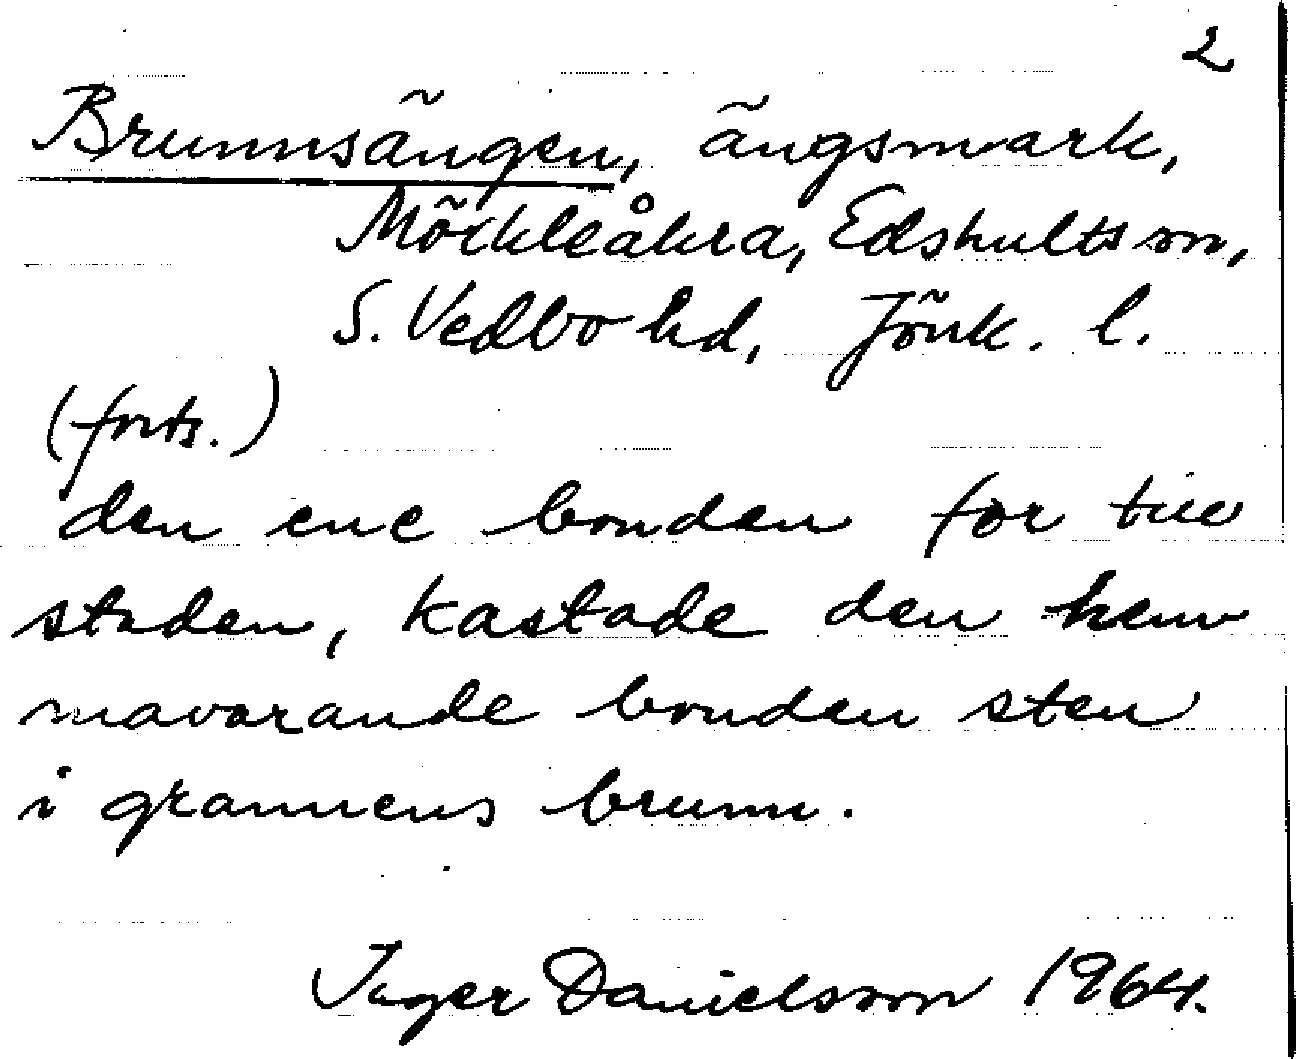 2
Brunnsängen, ängsmark,
Möckleåkra, Edshults sn,
S. Vedbo hd, Jönk. l.
(forts.)
den ene bonden for till
staden, kastade den hem
mavarande bonden sten
i grannens brunn.
Inger Danielsson 1964.